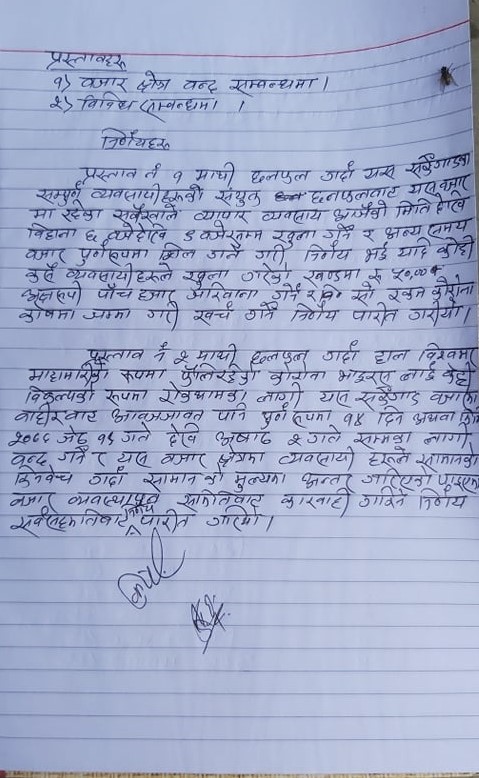 प्रस्तावहरु
१) वजार क्षेत्र वन्द सम्वन्धमा ।
२) विविध सम्वन्धमा ।
निर्णयहरु
प्रस्ताव नं १ माथी छलफल गर्दा यस सर्केगाडका
सम्पुर्ण व्यवसायीहरुको संयुक्त छलफलवाट यस वजार
मा रहेका सवैखाले व्यापार व्यवसाय आजैको मिति देखि
विहान ६ वजेदेखि ८ वजेसम्म खुला गर्ने र अन्य समय
वजार पुर्णरुपमा गर्ने गरी निर्णय भई यदि कोही
कसै व्यवसायीहरुले खुला गरेको खण्डमा रु ५०००
अक्षरुपी पाँच हजार जरिवाना गर्ने र सो रकम कोरोना
कोषमा जम्मा गरी खर्च गर्ने निर्णय पारीत गरीयो ।
प्रस्ताव नं २ माथी छलफल गर्दा हाल विश्वमा
माहामारीको रुपमा फैलिरहेको कोरोना भाइरस लाई केही
विकल्पको रुपमा रोकथामका लागी यस सर्केगाड वजारमा
वाहीरवाट आवतजावत पनि पुर्ण रुपमा १४ दिन अथवा मिति
२०७७ जेठ १९ गते देखि अषाढ २ गते सम्मका लागी
वन्द गर्ने र यस वजार क्षेत्रमा व्यवसायी हरुले सामानको
किनवेच गर्दा सामान को मुल्यमा अन्तर गरिएको पाइएमा
वजार व्यवस्थापन समितिवाट कारवाही गरिने निर्णय
सर्वसहमतिवाट निर्णय पारीत गरियो ।